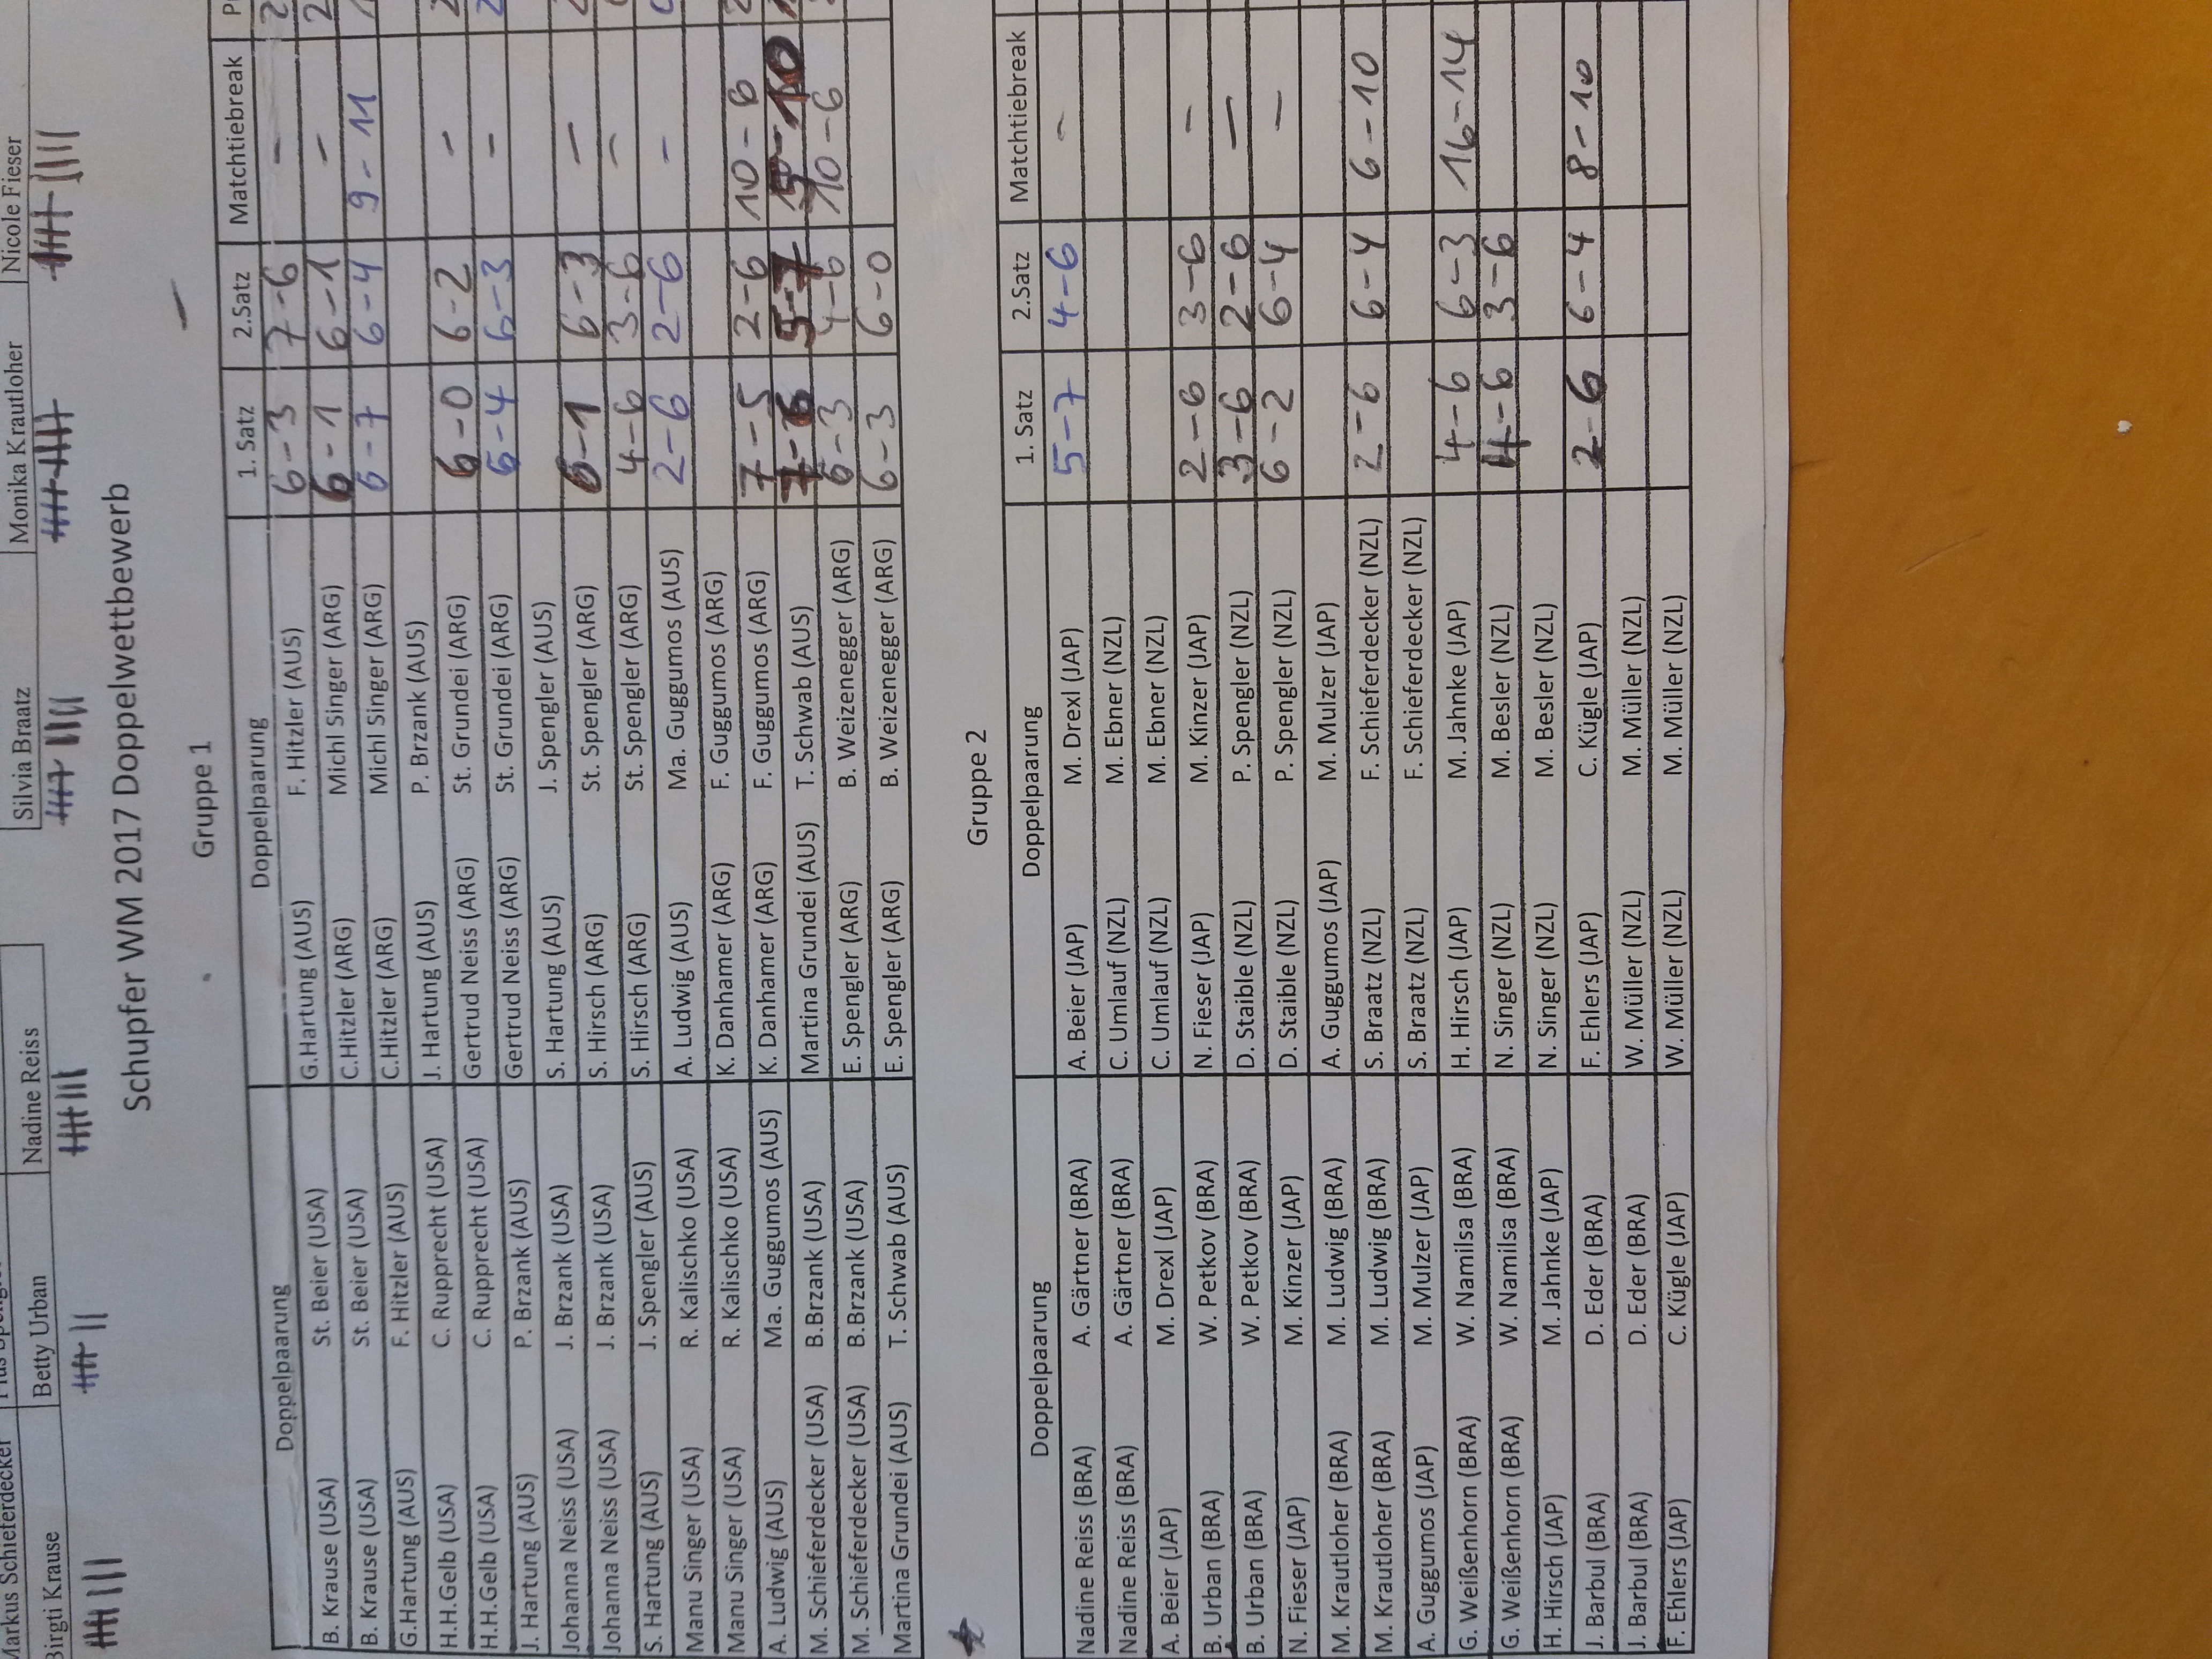 Markus Schieferdecker
Birgti Krause Betty Urban Nadine Reiss Silvia Braatz Monika Krautloher Nicole Fieser
Schupfer WM 2017 Doppelwettbewerb
Gruppe 1
Doppelpaarung Doppelpaarung 1. Satz 2.Satz Matchtiebreak
B. Krause (USA) St. Beier (USA) G.Hartung (AUS) F. Hitzler (AUS) 6-3 7-6 -
B. Krause (USA) St. Beier (USA) C.Hitzler (ARG) Michl Singer (ARG) 6-1 6-1 -
G.Hartung (AUS) F. Hitzler (AUS) C.Hitzler (ARG) Michl Singer (ARG) 6-7 6-4 9-11
H.H.Gelb (USA) C. Rupprecht (USA) J. Hartung (AUS) P. Brzank (AUS)
H.H.Gelb (USA) C. Rupprecht (USA) Gertrud Neiss (ARG) St. Grundei (ARG) 6-0 6-2 -
J. Hartung (AUS) P. Brzank (AUS) Gertrud Neiss (ARG) St. Grundei (ARG) 6-4 6-3 -
Johanna Neiss (USA) J. Brzank (USA) S. Hartung (AUS) J. Spengler (AUS)
Johanna Neiss (USA) J. Brzank (USA) S. Hirsch (ARG) St. Spengler (ARG) 6-1 6-3 -
S. Hartung (AUS) J. Spengler (AUS) S. Hirsch (ARG) St. Spengler (ARG) 4-6 3-6 -
Manu Singer (USA) R. Kalischko (USA) A. Ludwig (AUS) Ma. Guggumos (AUS) 2-6 2-6 -
Manu Singer (USA) R. Kalischko (USA) K. Danhamer (ARG) F. Guggumos (ARG)
A. Ludwig (AUS) Ma. Guggumos (AUS) K. Danhamer (ARG) F. Guggumos (ARG) 7-5 2-6 10-6
M. Schieferdecker (USA) B.Brzank (USA) Martina Grundei (AUS) T. Schwab (AUS) 7-6 5-7
M. Schieferdecker (USA) B.Brzank (USA) E. Spengler (ARG) B. Weizenegger (ARG) 6-3 4-6 10-6
Martina Grundei (AUS) T. Schwab (AUS) E. Spengler (ARG) B. Weizenegger (ARG) 6-3 6-0
Gruppe 2
Doppelpaarung Doppelpaarung 1. Satz 2.Satz Matchtiebreak
Nadine Reiss (BRA) A. Gärtner (BRA) A. Beier (JAP) M. Drexl (JAP) 5-7 4-6 -
Nadine Reiss (BRA) A. Gärtner (BRA) C. Umlauf (NZL) M. Ebner (NZL)
A. Beier (JAP) M. Drexl (JAP) C. Umlauf (NZL) M. Ebner (NZL)
B. Urban (BRA) W. Petkov (BRA) N. Fieser (JAP) M. Kinzer (JAP) 2-6 3-6 -
B. Urban (BRA) W. Petkov (BRA) D. Staible (NZL) P. Spengler (NZL) 3-6 2-6 -
N. Fieser (JAP) M. Kinzer (JAP) D. Staible (NZL) P. Spengler (NZL) 6-2 6-4 -
M. Krautloher (BRA) M. Ludwig (BRA) A. Guggumos (JAP) M. Mulzer (JAP)
M. Krautloher (BRA) M. Ludwig (BRA) S. Braatz (NZL) F. Schieferdecker (NZL) 2-6 6-4 6-10
A. Guggumos (JAP) M. Mulzer (JAP) S. Braatz (NZL) F. Schieferdecker (NZL)
G. Weißenhorn (BRA) W. Namilsa (BRA) H. Hirsch (JAP) M. Jahnke (JAP) 4-6 6-3 16-14
G. Weißenhorn (BRA) W. Namilsa (BRA) N. Singer (NZL) M. Besler (NZL) 4-6 3-6
H. Hirsch (JAP) M. Jahnke (JAP) N. Singer (NZL) M. Besler (NZL)
J. Barbul (BRA) D. Eder (BRA) F. Ehlers (JAP) C. Kügle (JAP) 2-6 6-4 8-10
J. Barbul (BRA) D. Eder (BRA) W. Müller (NZL) M. Müller (NZL)
F. Ehlers (JAP) C. Kügle (JAP) W. Müller (NZL) M. Müller (NZL)